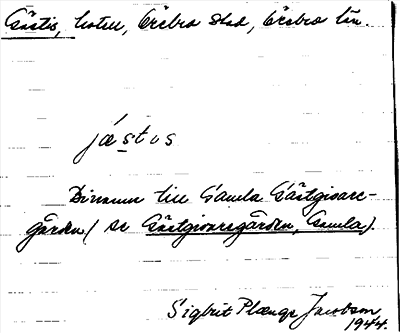 Gästis, hotell, Örebro stad, Örebro län.
jæstis
Binamn till Gamla Gästgivare-
gården (se Gästgivaregården, Gamla).
Sigbrit Plænge Jacobson
1944.